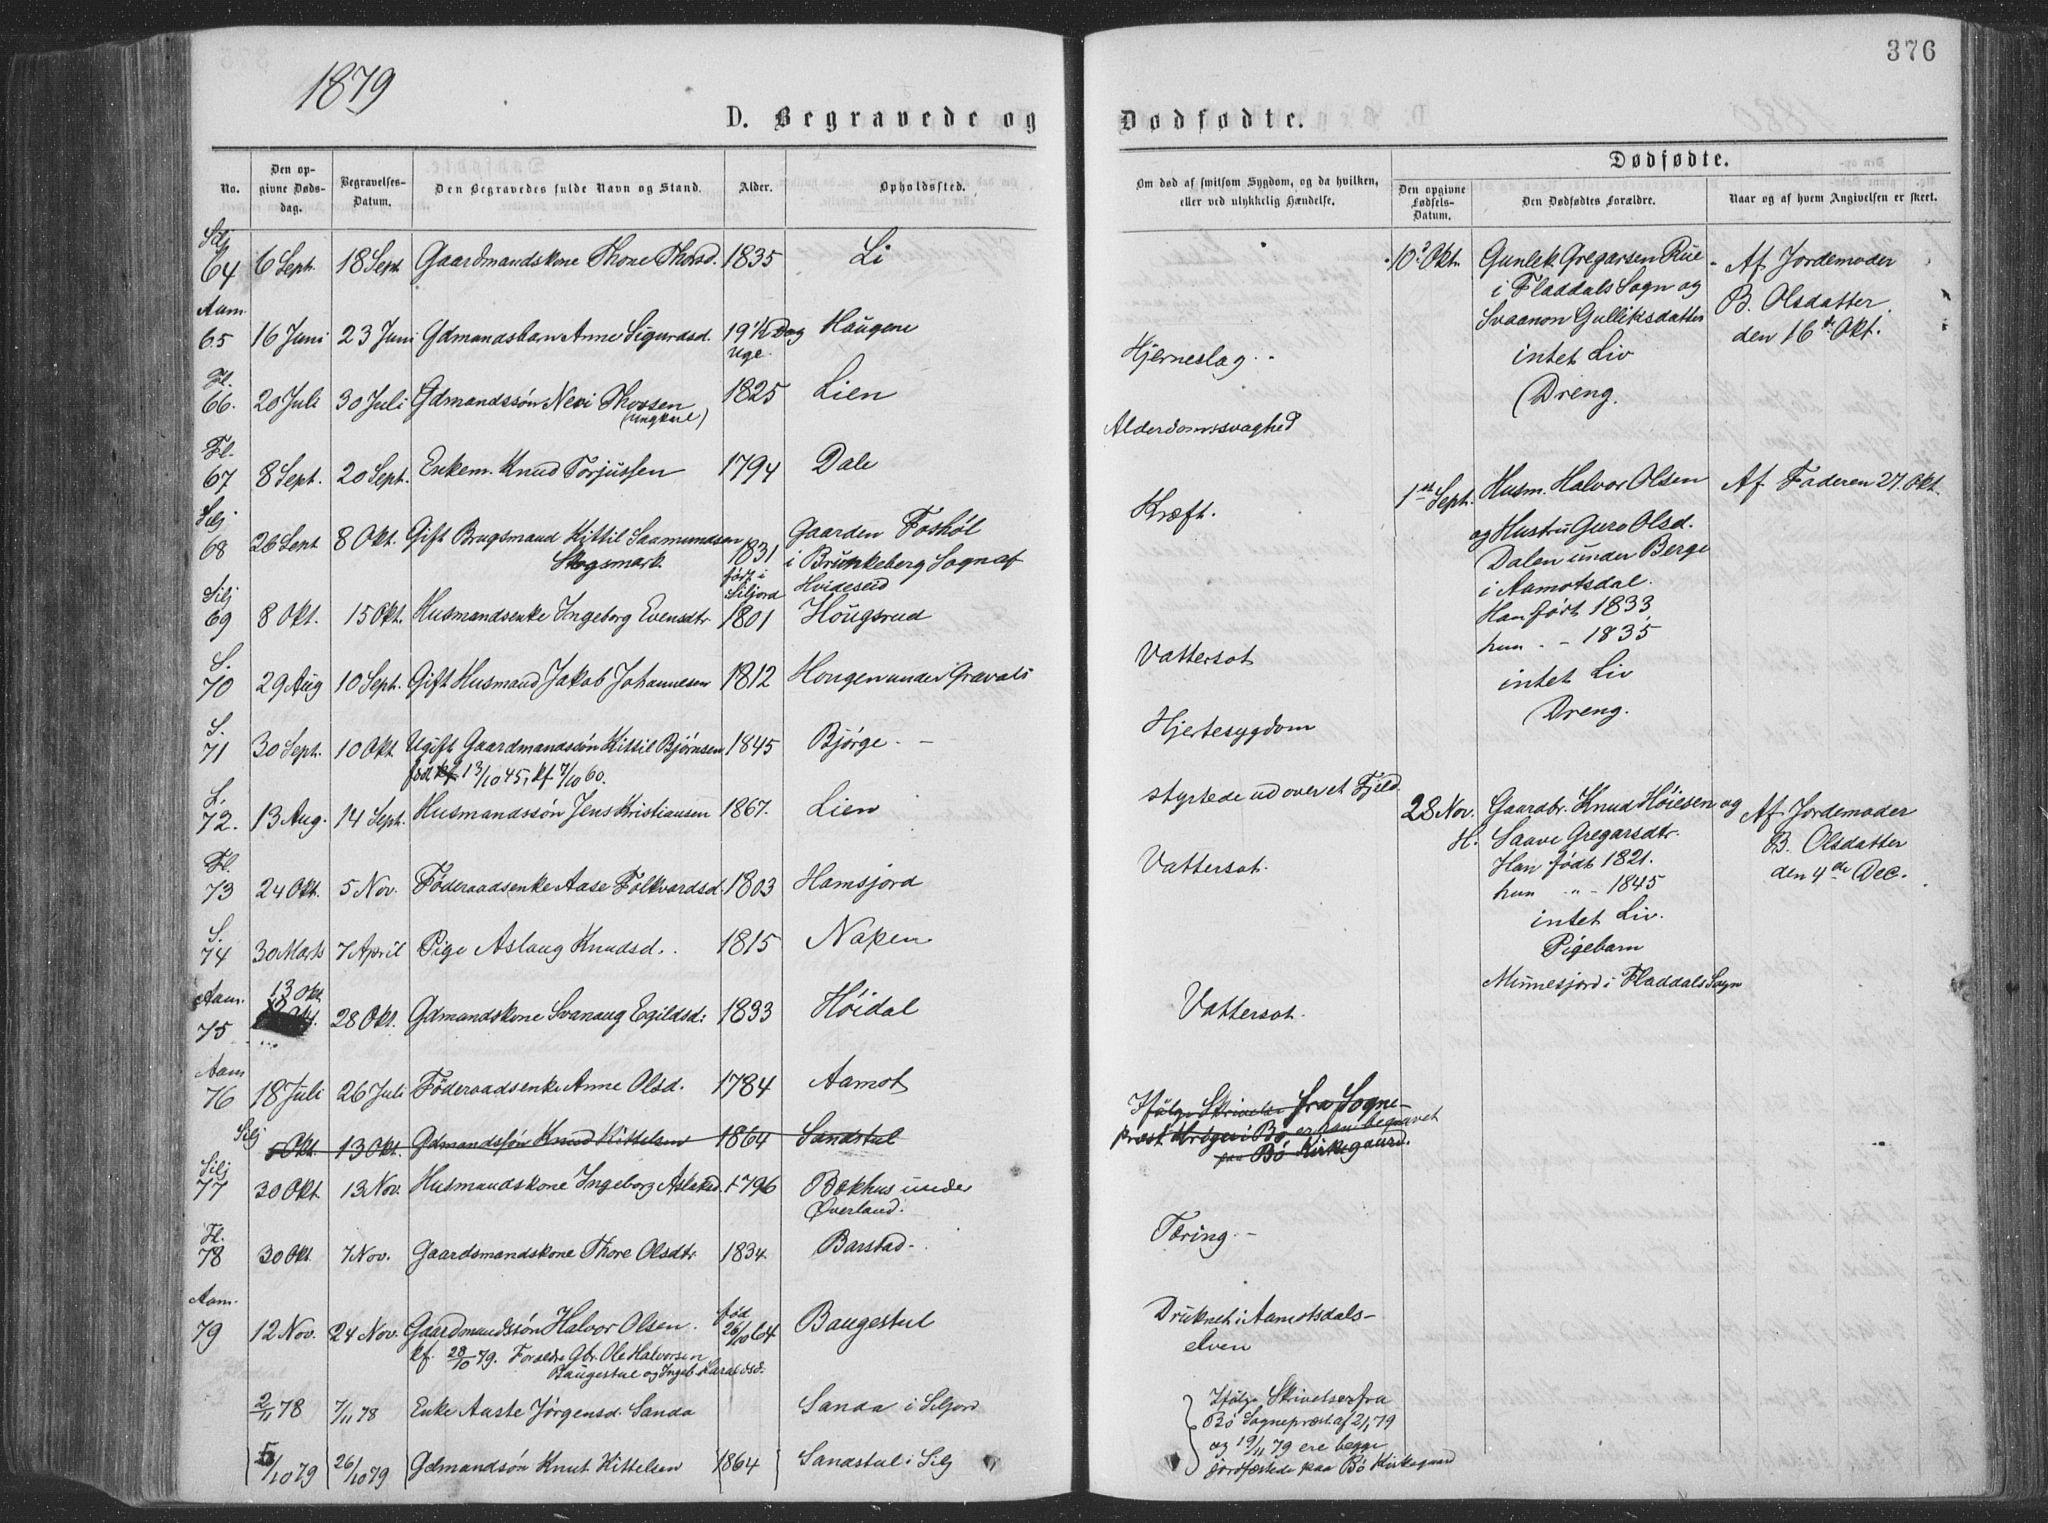 376
1879
D. Begravede og Dødfødte.
No.
Den opgivne Dødsdag.
Begravelses-Datum.
Den Begravedes fulde Navn og Stand.
Alder.
Opholdssted.
Om død af smitsom Sygdom, og da hvilken, eller ved ulykkelig Hændelse.
Dødfødte.
Den opgivne Fødsels-Datum.
Den Dødfødtes Forældre.
Naar og af hvem Angivelsen er skeet.
Silj
64 6 Sept. 18 Sept. Gaardmandskone Thone Thorsd. 1835 Li
Aam.
65 16 Juni 23 Juni Gdmandsbarn Anne Sigurdsd. 19½ Dag Haugene
Uge.
Hjerneslag
Fl.
66. 20 Juli 30 Juli Gdmandssøn Nevi Thovsen 1825 Lien
(ungkarl)
Alderdomssvaghed
Fl.
67 8 Sept. 20 Sept. Enkem. Knud Torjussen 1794 Dale
Kræft.
Silj
68 26 Sept 8 Okt. Gift Brugsmand Kittil Saamundsen 1831 Gaarden Foshøl
Skogsmark født i i Brunkeberg Sogn af
Siljord Hvideseid
Silj
69 8 Okt. 15 Okt. Husmandsenke Ingeborg Evensdtr 1801 Hougsrud
Vattersot
S.
70 29 Aug 10 Sept. Gift Husmand Jakob Johannesen 1812 Hougen under Gravali
Hjertesygdom
S.
71 30 Sept. 10 Okt Ugift Gaardmandssøn Kittil Bjørnsen 1845 Bjørge.
født 13/10 45, kf 7/10 60.
styrtede ud over et Fjeld.
S.
72. 13 Aug. 14 Sept. Husmandssøn Jens Kristiansen 1867. Lien
Vattersot.
Fl.
73 24 Okt. 5 Nov. Føderaadsenke Aase Folkvardsd. 1803 Hamsjord
S.
74 30 Marts 7 April Pige Aslaug Knudsd. 1815 Napen
Aam. 13 Okt.
75 28 Okt. Gdmandskone Svanaug Egildsd: 1833 Høidal
Vattersot.
Aam
76 18 Juli 26 Juli Føderaadsenke Anne Olsd. 1784 Aamot
Ifølge Skrivelse fra Sogne-
præst Krøger i Bø er han begravet
paa Bø Kirkegaard.
Silj
5 Okt. 13 Okt. Gdmandssøn Knud Kittelsen 1864 Sandstul
Silj
77 30 Okt 13 Nov. Husmandskone Ingeborg Aslaksd. 1796 Bakhus under
Øverland.
Tæring.
Fl.
78 30 Okt 7 Nov. Gaardsmandskone Thore Olsdtr 1834 Barstad
Aam.
79 12 Nov. 24 Nov. Gaardmandssøn Halvor Olsen. fød 26/10 64 Baugestul
kf. 28/10 79. Forældre Gbr. Ole Halvorsen
Baugestul og Ingeb. Haraldsd.
Druknet i Aamotsdals-
elven
2/11 78 7/11 78 Enke Aaste Jørgensd. Sanda Sanda i Siljord
5/10 79 26/10 79 Gdmandsøn Knut Kittelsen 1864 Sandstul i Silj
Ifølge Skrivelser fra
Bø Sognepræst af 2/1 79
og 19/11 79 ere begge
jordfæstede paa Bø Kirkegaard
10 Okt. Gunlek Gregarsen Rue
i Fladdals Sogn og
Svaanon Gulliksdatter
intet Liv
Dreng.
Af Jordemoder
B. Olsdatter
den 16de Okt.
1ste Sept. Husm. Halvor Olsen
og Hustru Guro Olsd.
Dalen under Berge
i Aamotsdal.
Han født 1833,
hun - 1835
intet Liv
Dreng.
Af Faderen 27. Okt.
28 Nov. Gaardbr. Knud Høiesen og
H. Saave Gregarsdtr.
Han født 1821.
hun " - 1845
intet Liv.
Pigebarn
Minnesjord i Fladdals Sogn
Af Jordemoder
B. Olsdatter
den 4de Dec.